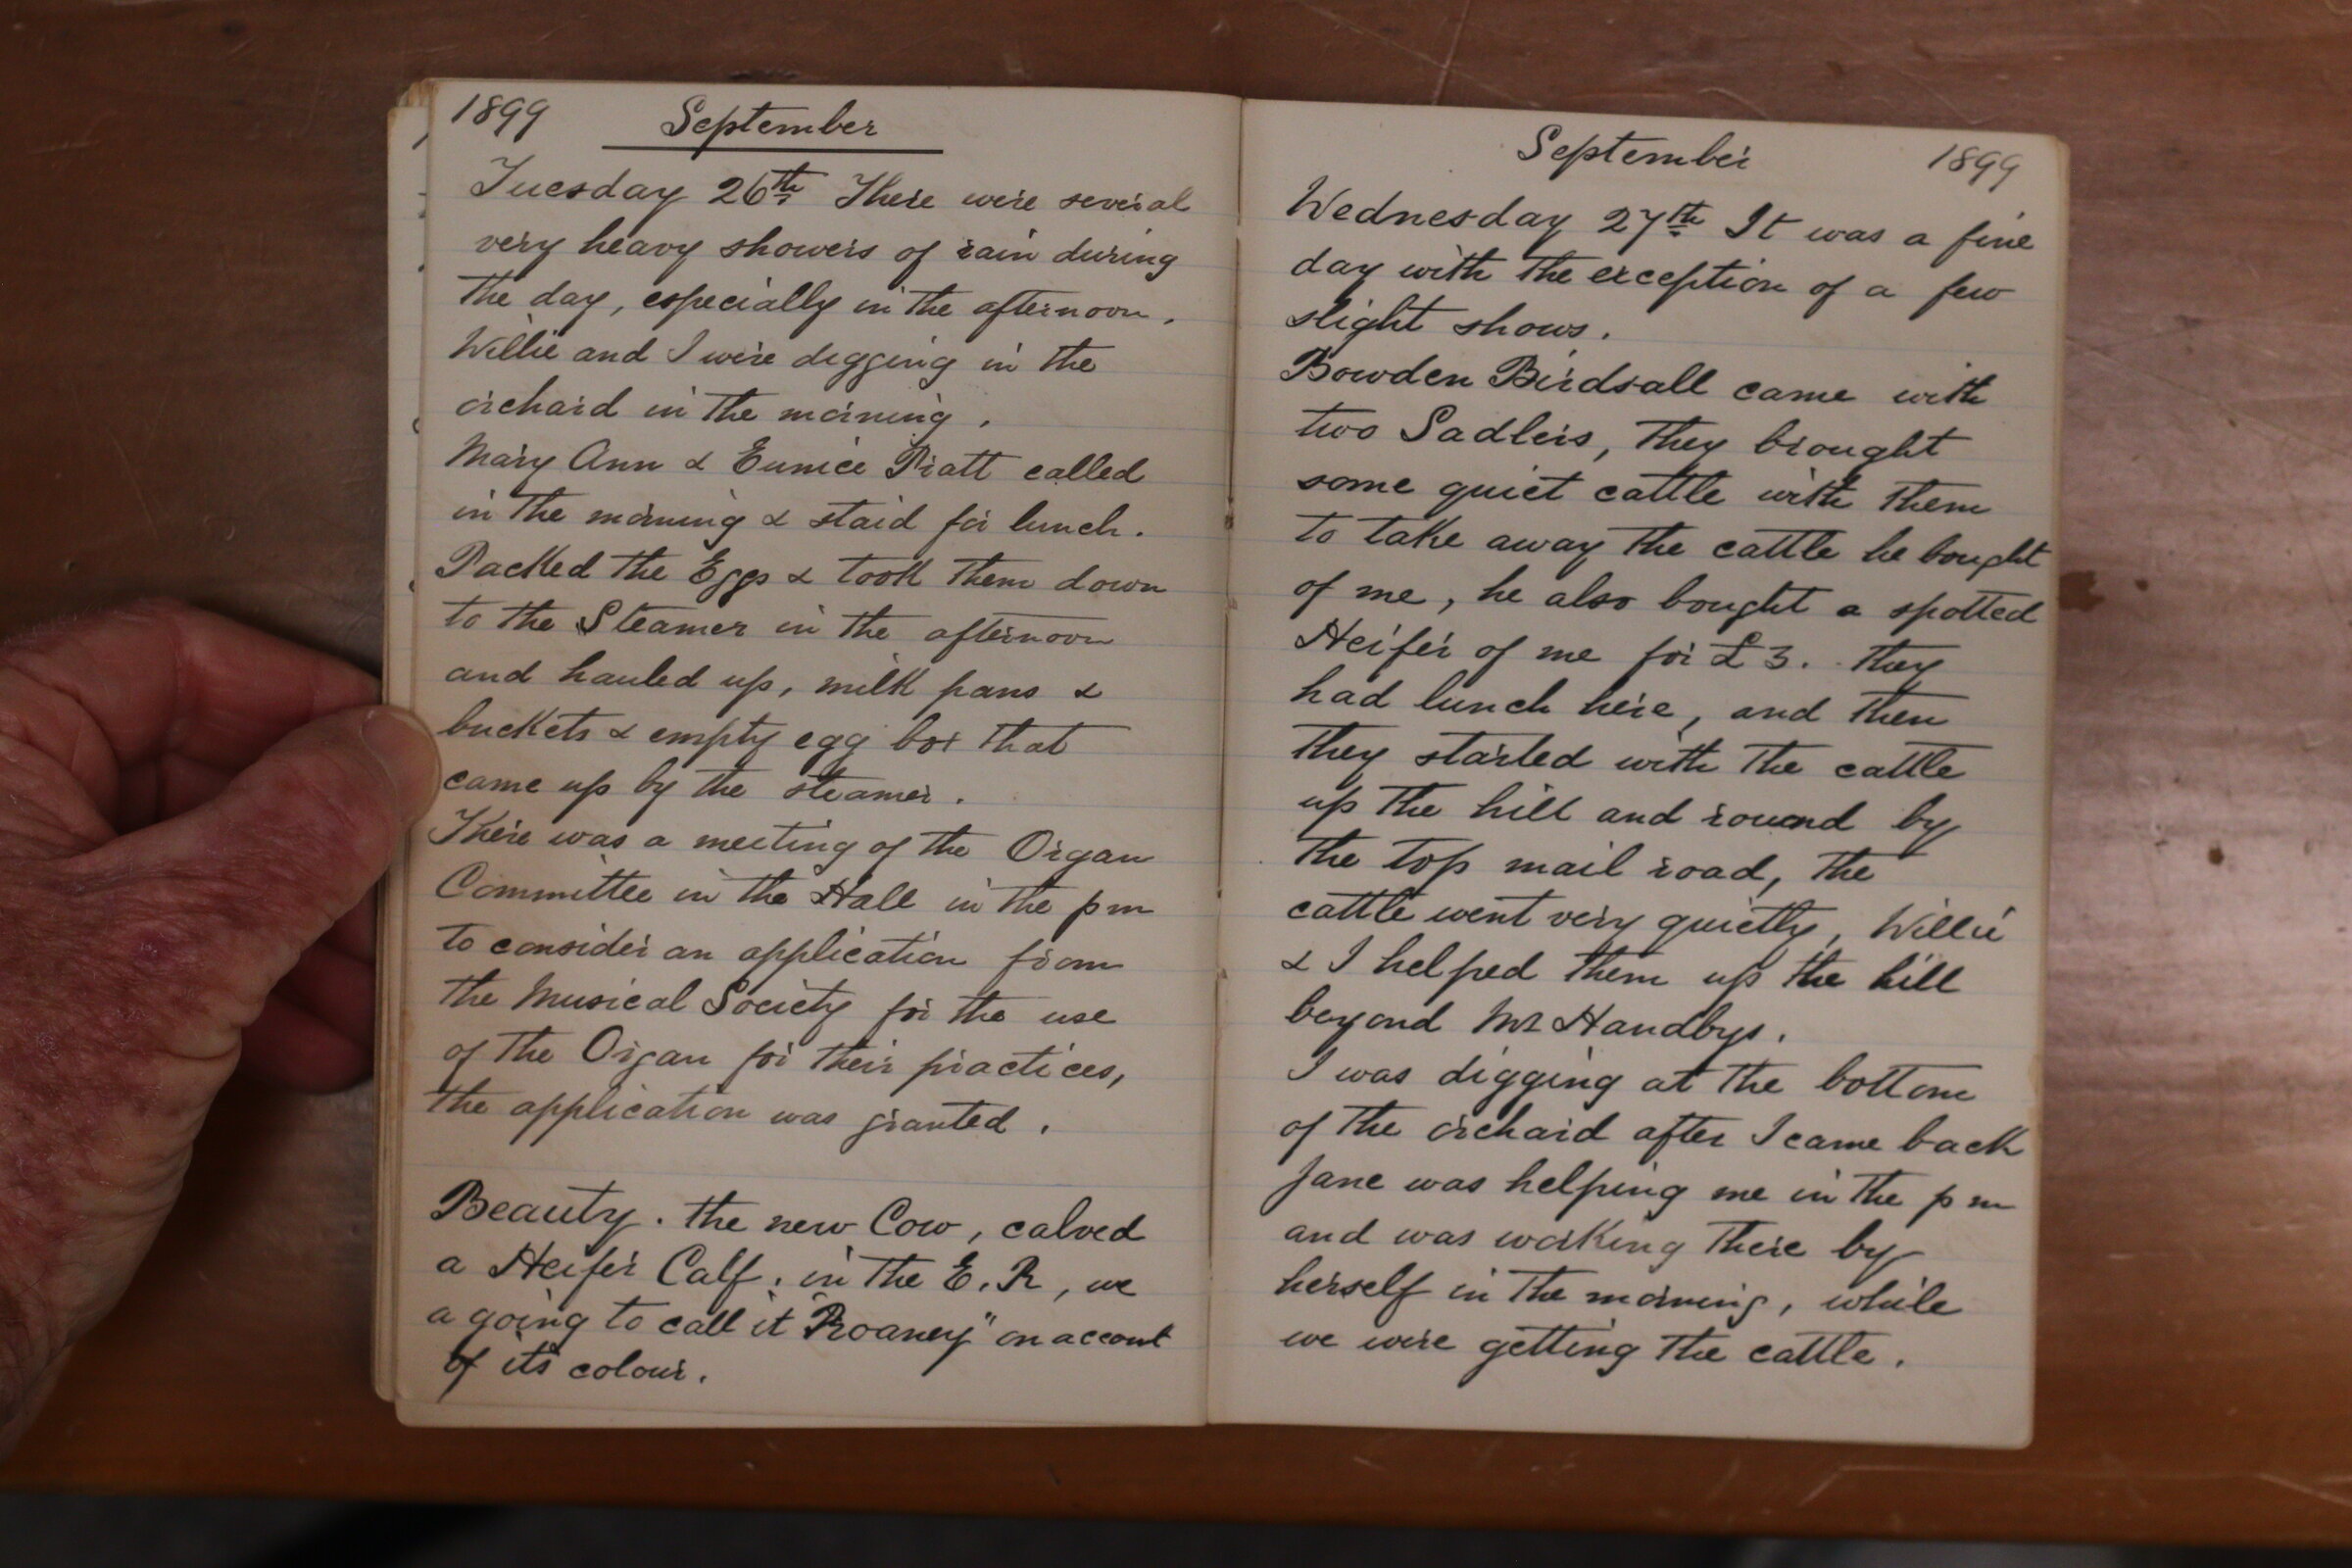 1899 September
Tuesday 26th There were several
very heavy showers of rain during
the day, especially in the afternoon.
Willie and I were digging in the
orchard in the morning.
Mary Ann & Eunice Pratt called
in the morning & staid for lunch.
Packed the Eggs & took them down
to the Steamer in the afternoon
and hauled up, milk pans &
buckets & empty egg box that
came up by the steamer.
There was a meeting of the Organ
Committee in the Hall in the pm
to consider an application from
the Musical Society for the use
of the Organ for their practices,
the application was granted.
Beauty. the new Cow, calved
a Heifer Calf. in the E. R, we
a going to call it "Roaney" on account
of its colour.
September 1899
Wednesday 27th It was a fine
day with the exception of a few
slight shows.
Bowden Birdsall came with
two Sadlers, they brought
some quiet cattle with them
to take away the cattle he bought
of me, he also bought a spotted
Heifer of me for £3. they
had lunch here, and then
they started with the cattle
up the hill and round by
the top mail road, the
cattle went very quietly, Willie
& I helped them up the hill
beyond Mr Handbys.
I was digging at the bottom
of the orchard after I came back
Jane was helping me in the pm
and was working there by
herself in the morning, while
we were getting the cattle.